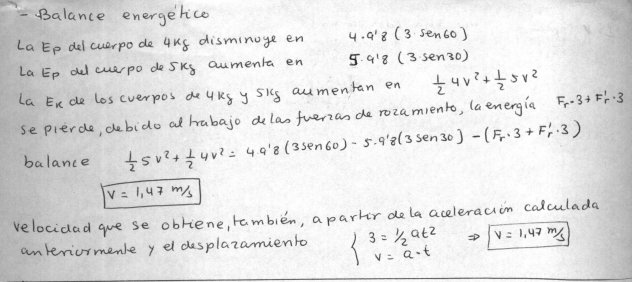 - Balance energético
La Ep del cuerpo de 4Kg disminuye en 4·9'8 (3·sen60)
La Ep del cuerpo de 5Kg aumenta en 5·9'8 (3·sen30)
La Ek de los cuerpos de 4Kg y 5Kg aumentan en 1/2 4v² + 1/2 5v²
se pierde, debido al trabajo de las fuerzas de rozamiento, la energía Fr·3 + F'r·3
balance 1/2 5v² + 1/2 4v² = 4 9'8 (3sen60) - 5·9'8 (3sen30) - (Fr·3 + F'r·3)
v = 1,47 m/s
velocidad que se obtiene, también, a partir de la aceleración calculada
anteriormente y el desplazamiento { 3 = 1/2 at2 ⇒ v = 1,47 m/s
v = a·t